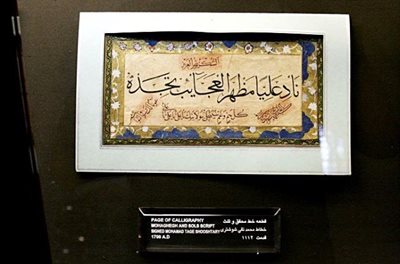 ناد عليا مظهر العجايب تجده
كل هم وغم سينجلي
PAGE OF CALLIGRAPHY
MOHAGHEGH AND SOLS SCRIPT
SIGNED MOHAMAD TAGE SHOOSHTARY
1700 A.D
قطعه خط محقق و ثلث
خطاط محمد تقی شوشتری
قدمت ۱۱۱۲